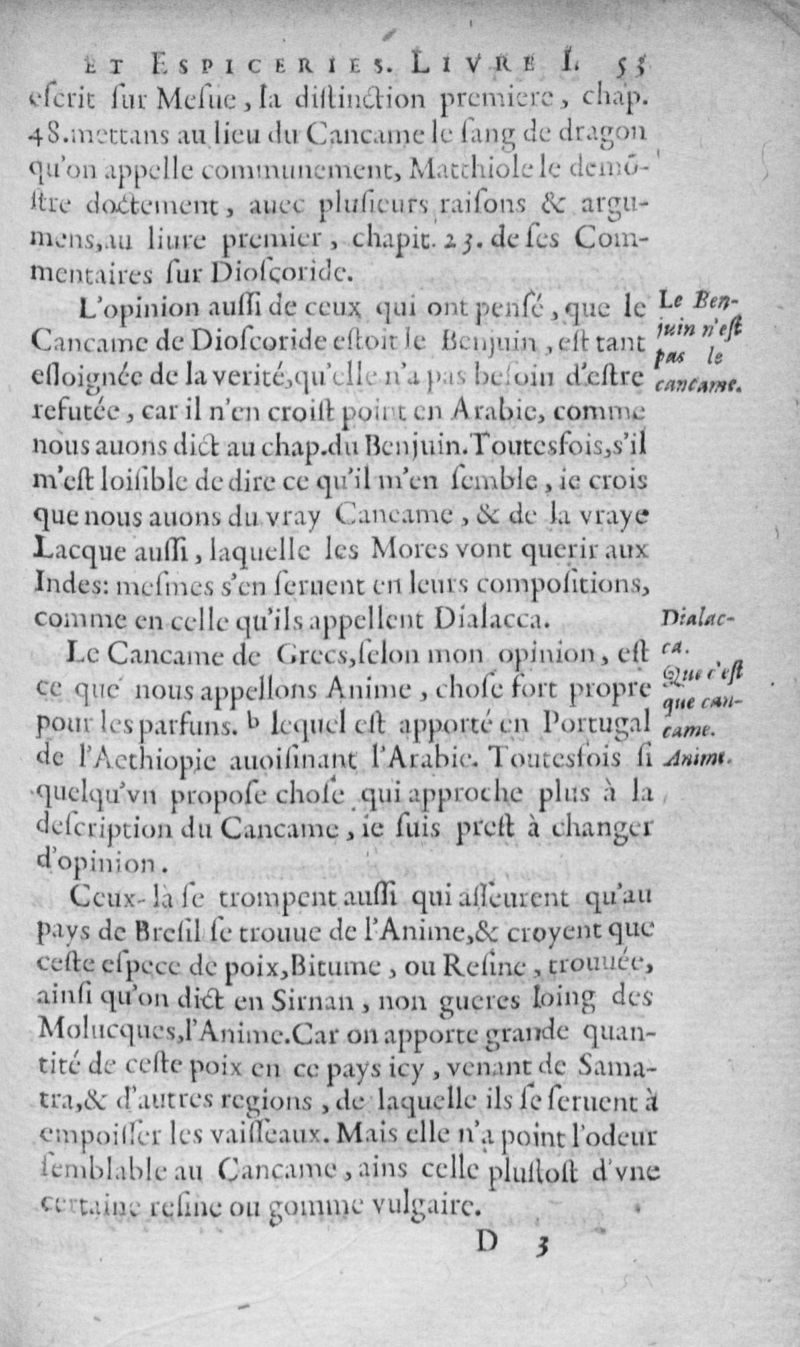 ET ESPICERIES. LIVRE I. 55
eſcrit ſur Meſue, ſa diſtinction premiere, chap.
48.mettans au lieu du Cancame le ſang de dragon
qu'on appelle communement, Matthiole le demõ-
ſtre doctement, auec pluſieurs raiſons & argu-
mens,au liure premier, chapit. 23. de ſes Com-
mentaires ſur Dioſcoride.
L'opinion auſſi de ceux qui ont penſé, que le
Cancame de Dioſcoride eſtoit le Benjuin, eſt tant
eſloignée de la verité,qu'elle n'a pas beſoin d'eſtre
refutée, car il n'en croiſt point en Arabie, comme
nous auons dict au chap.du Benjuin.Toutesfois,s'il
m'eſt loiſible de dire ce qu'il m'en ſemble, ie crois
que nous auons du vray Cancame, & de la vraye
Lacque auſſi, laquelle les Mores vont querir aux
Indes: meſmes s'en ſeruent en leurs compoſitions,
comme en celle qu'ils appellent Dialacca.
Le Cancame de Grecs,ſelon mon opinion, eſt
ce que nous appellons Anime, choſe fort propre
pour les parfuns. b lequel eſt apporté en Portugal
de l'Aethiopie auoiſinant l'Arabie. Toutesfois ſi
quelqu'vn propoſe choſe qui approche plus à la
deſcription du Cancame, ie ſuis preſt à changer
d'opinion.
Ceux-là ſe trompent auſſi qui aſſeurent qu'au
pays de Breſil ſe trouue de l'Anime,& croyent que
ceſte eſpece de poix,Bitume, ou Reſine, trouuée,
ainſi qu'on dict en Sirnan, non gueres loing des
Molucques,l'Anime.Car on apporte grande quan-
tité de ceſte poix en ce pays icy, venant de Sama-
tra,& d'autres regions, de laquelle ils ſe ſeruent à
empoiſſer les vaiſſeaux. Mais elle n'a point l'odeur
ſemblable au Cancame, ains celle pluſtoſt d'vne
certaine reſine ou gomme vulgaire.
D 3
Le Ben-
juin n'eſt
pas le
cancame.
Dialac-
ca.
Que c'eſt
que can-
came.
Anime.